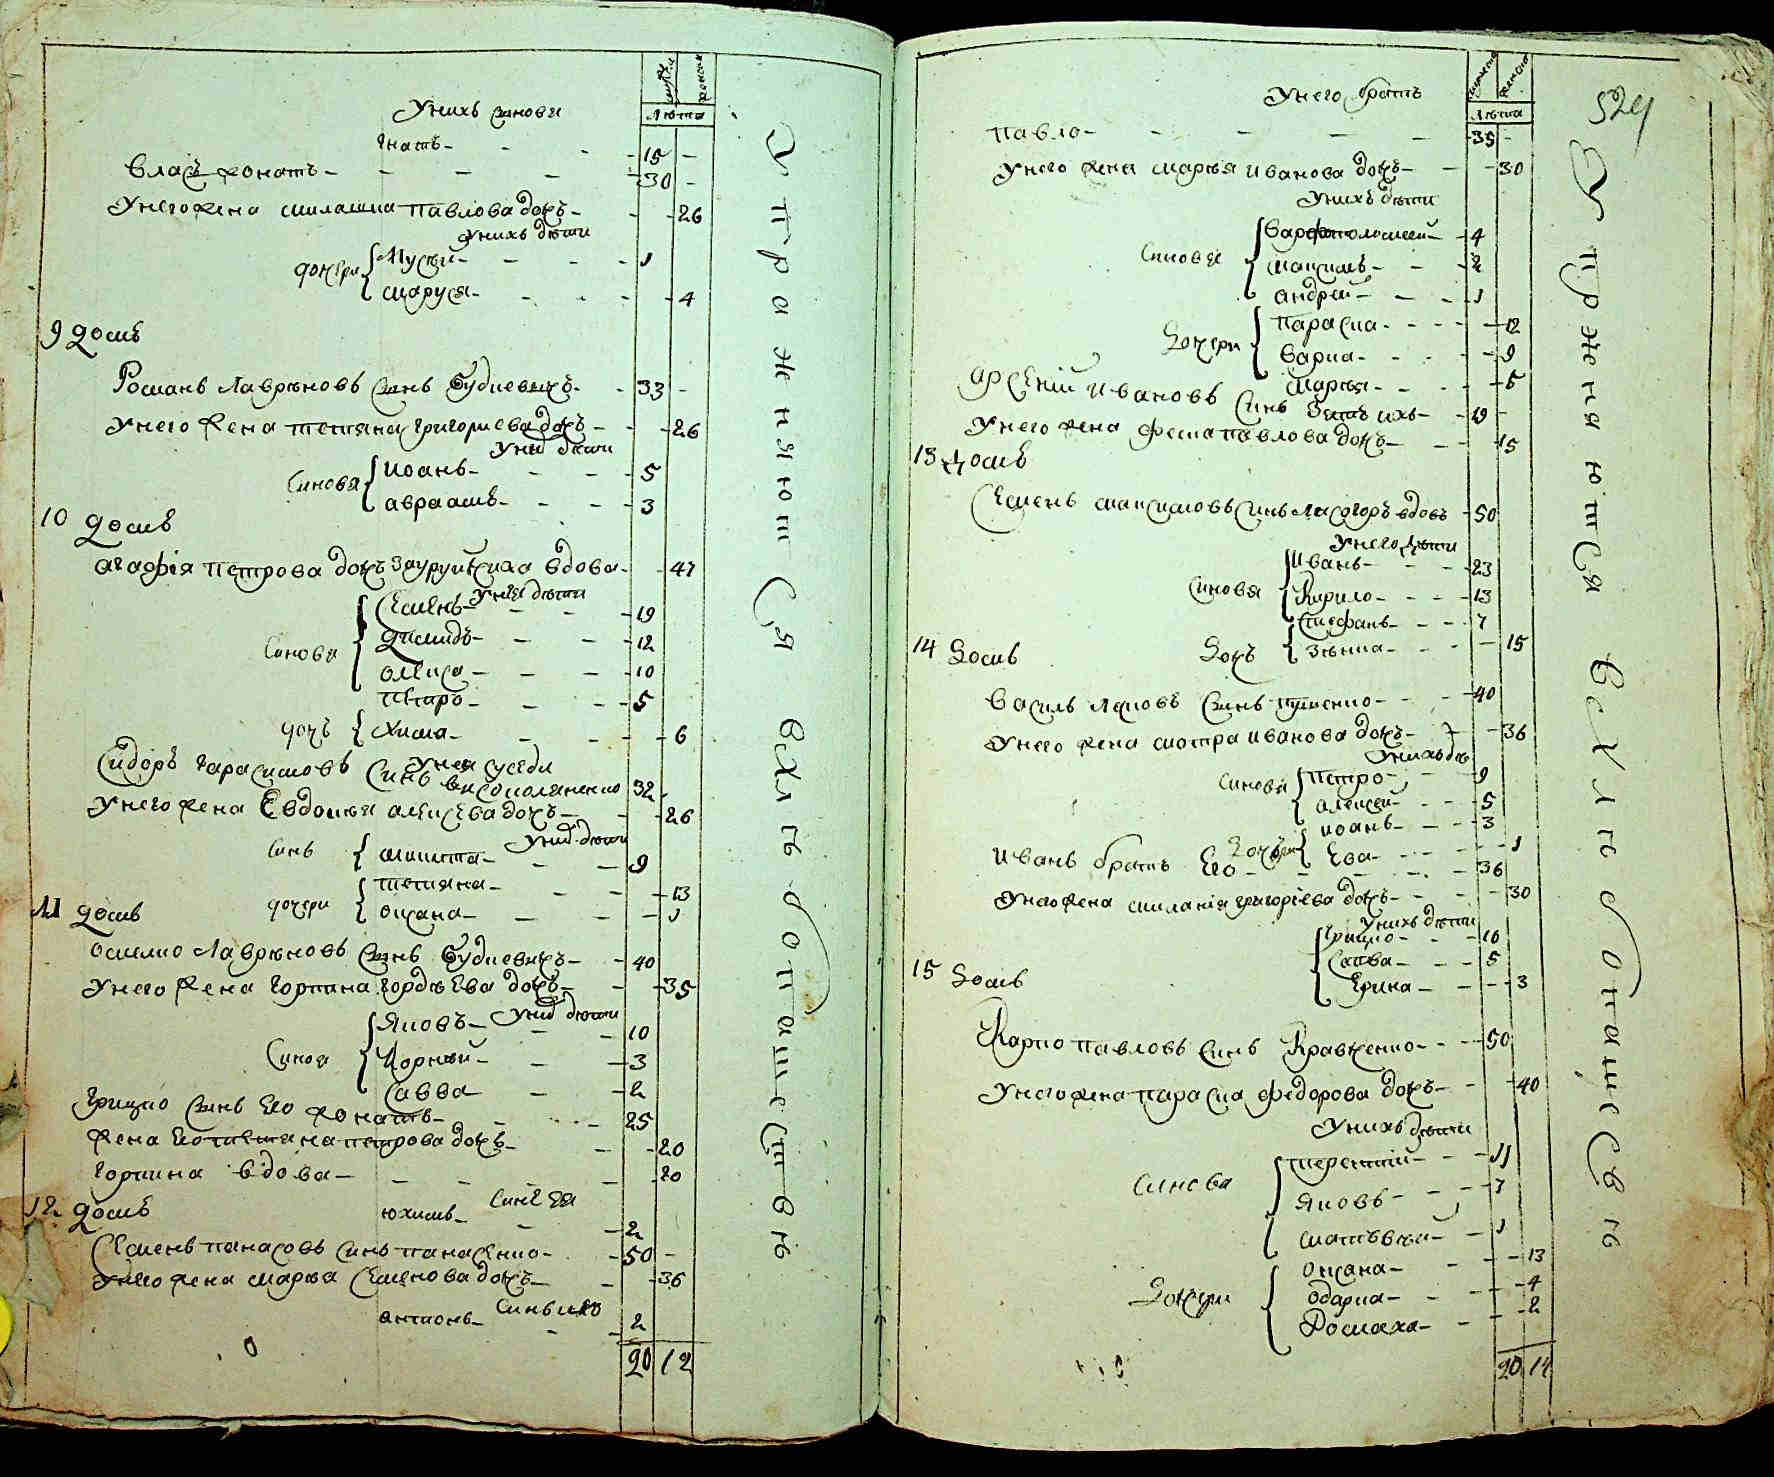 мужеска
женска
Лѣта
Унихъ синови
Гнатъ - 15 -
Власъ женатъ - 30 -
Унего жена Милашка Павлова дочъ - 26
Унихъ дѣти
дочери
Мусѣй - 1
Маруся - 4
9 домъ
Романъ Лавръновъ синъ Будневичъ - 33 -
Унего жена Тетяна Григориева дочъ - 26
Уних дѣти
Синовя
Иоанъ - 5
Авраамъ - 3
10 домъ
Агафія Петрова дочъ вдова - 47
Унея дѣти
Синови
Семенъ - 19
Демидъ - 12
Олекса - 10
Петро - 5
дочъ
Хима - 6
Унея суседи
Сидоръ Гарасимовъ синъ 32
Унего жена Евдокия Алексѣева дочъ - 26
Уних дѣти
Синъ
Микита - 9
дочери
Тетяна - 13
Оксана - 1
11 домъ
Осипко Лавръновъ синъ Будневичъ - 40
Унего жена Горпина Гордѣева дочъ - 35
Уних дѣти
Синовя
Яковъ - 10
Корнѣй - 3
Савва - 2
Грицко синъ его женатъ - 25
жена его Тетяна Петрова дочъ - 20
Горпина вдова - 20
Синъ ея
Юхимъ - 2
12 домъ
Семенъ Панасовъ синъ Панасенко - 50 -
Унего жена Марѣя Семенова дочъ - 36
Синъ ихъ
Антонъ - 2
20 12
Упражняются вхлѣбопашествѣ
524
мужеска
женска
Лѣта
Унего братъ
Павло - 35 -
Унего жена Марѣя Иванова дочъ - 30
Унихъ дѣти
Синовя
Варфоломей - 4
Максимъ - 2
Андрей - 1
Дочери
Параска - 12
Варка - 9
Марѣя - 5
Арсеній Ивановъ синъ Зять ихъ - 19 -
Унего жена Феска Павлова дочъ - 15
13 домъ
Семенъ Максимовъ синъ Лисогоръ вдовъ - 50
Унего дѣти
Синовя
Иванъ - 23
Кирило - 13
Стефанъ - 7
Дочъ
Зѣнка - 15
14 Домъ
Василь Яковъ синъ - 40
Унего жена Мотра Иванова дочъ - 36
Унихъ дѣ
Синовя
Петро - 9
Алексей - 5
Иоанъ - 3
Дочери
Ева - 1
Иванъ братъ Его - 36
Унего жена Миланія Григоріева дочъ - 30
Унихъ дѣти
Грицко - 16
Савва - 5
Ерина - 3
15 Домъ
Карпо Павловъ синъ Кравченко - 50
Унего жена Параска Федорова дочъ - 40
Унихъ дѣти
Синова
Терентій - 11
Яковъ - 7
Матѣвѣй - 1
Дочери
Оксана - 13
Одарка - 4
Домаха - 2
20 14
Упражняются вхлѣбопашествѣ